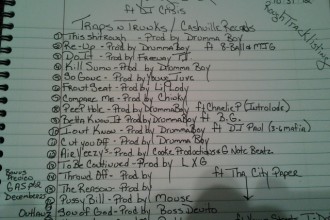 ft DJ
Traps-n-Trunks / Cashville Records
① This shit rough - Prod by Drumma Boy
② Re-Up - Prod by Drumma Boy ft 8-Ball & MJG
③ Do It - Prod by Freeway TJ
④ Kill Sumo - Prod by Drumma Boy
⑤ So Gone - Prod by
⑥ Front Seat - Prod by Lil Lody
⑦ Compare Me - Prod by
Peep Hole - Prod by Drumma Boy ft Charlie P (Introlude)
Betta Know It Prod by Drumma Boy ft B.G.
I dunt Know - Prod by Drumma Boy ft DJ Paul (3-6 mafia)
⑪ Cut you OFF - Prod by Drumma Boy
⑫ Air Yeezy's - Prod by Coke Productions & G Note Beatz
To Be Continued - Prod by LXG
Thrwd OFF - Prod by ft Tha City Paper
The Reason - Prod by
Pussy Bill - Prod by Mouse
Son of God - Prod by Boss Devito
Bonus
Promo
GAS per
December
Outlawz
10.31.12
Rough Tracklisting